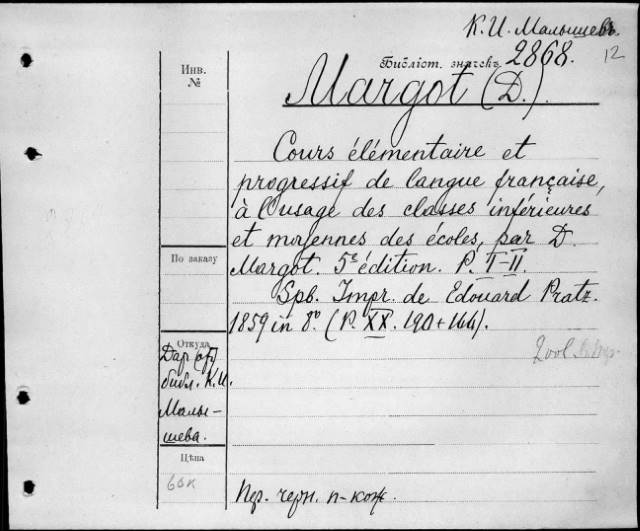 К. И. Малышевъ.
Библіот. значекъ 2868.
12
Инв. №
Margot (D.)
Cours élémentaire et
progressif de langue française,
à l'usage des classes inférieures
et moyennes des écoles, par D.
По заказу
Margot. 5e édition. P. I-II.
Spb. Impr. de Edouard Pratz.
1859 in 8°. (P. XX. 190+144).
Откуда
Дар
библ. К. И.
Малы-
шева.
Цѣна
60к
Пер. черн. п-кож.